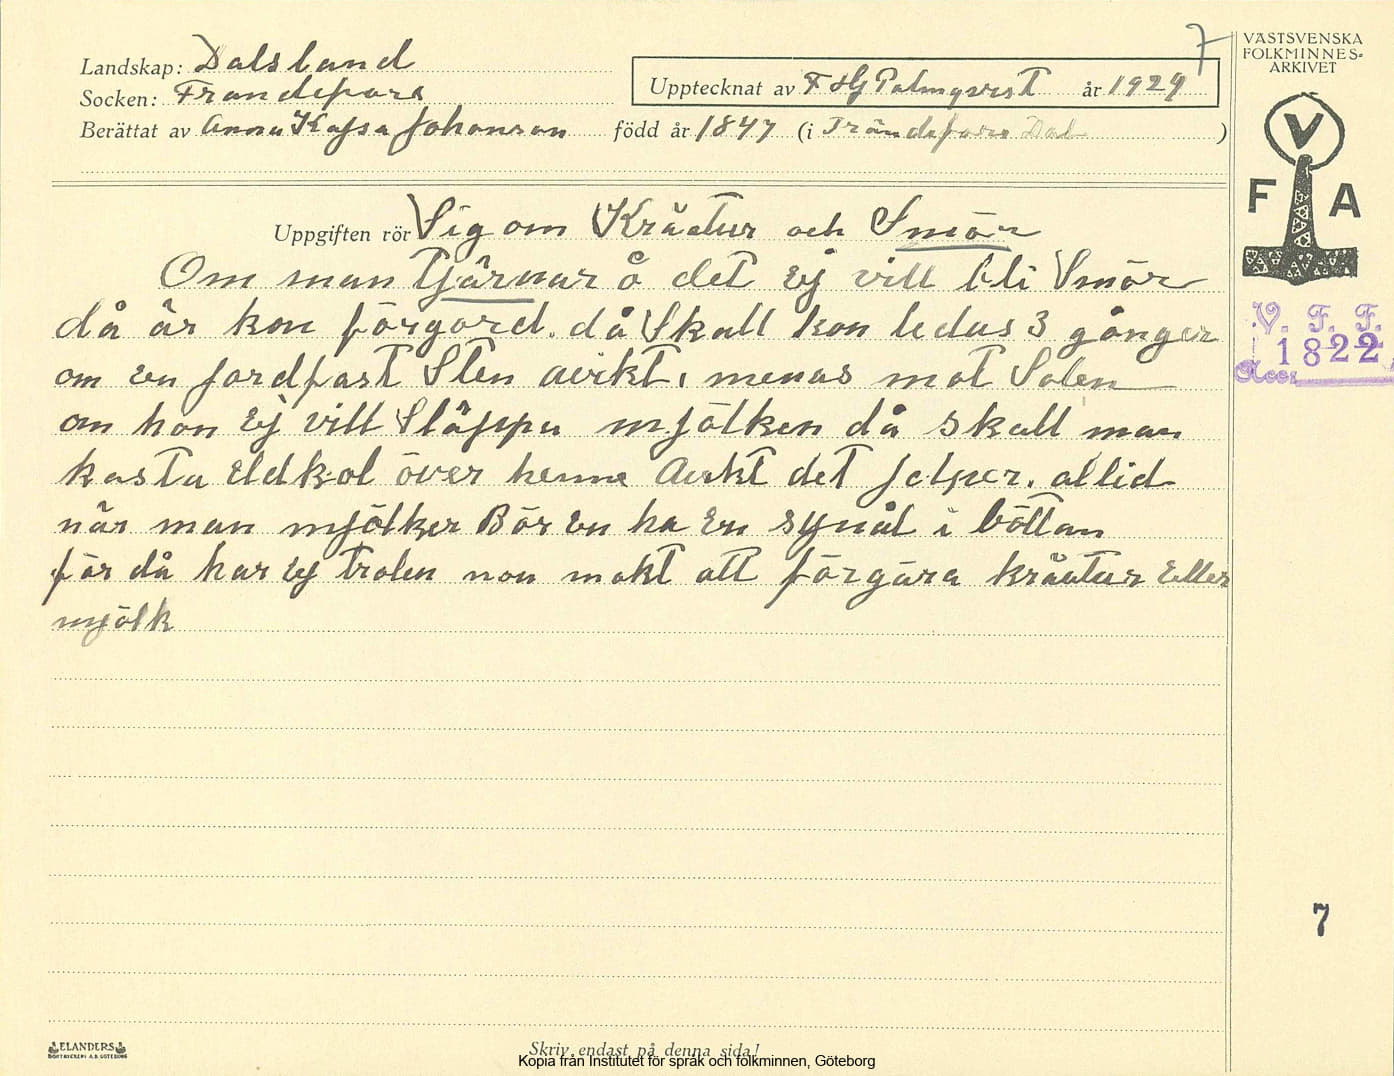 7
VÄSTSVENSKA
FOLKMINNES-
ARKIVET
Landskap: Dalsland
Socken: Frändefors
Upptecknat av F HG Palmqvist år 1929
Berättat av Anna Kajsa Johanson född år 1847 (i Frändefors Dal )
V
F A
Uppgiften rör Sig om Kräatur och Smör
Om man tjärnar å det Ej vill bli Smör
då är kon förgord. då Skall kon ledas 3 gånger
om en jordfast Sten avikt, menas mot Solen
om hon Ej vill Släppa mjölken då skall man
kasta Eldkol över henne Avikt det jelper. allid
när man mjölker Bör En ha En synål i böttan
för då har Ej trolen non makt att förgära kräatur Eller
mjölk
V. F. F.
1822
Acc:
7
ELANDERS
BOKTRYCKERI A.B. GÖTEBORG
Skriv endast på denna sida!
Kopia från Institutet för språk och folkminnen, Göteborg